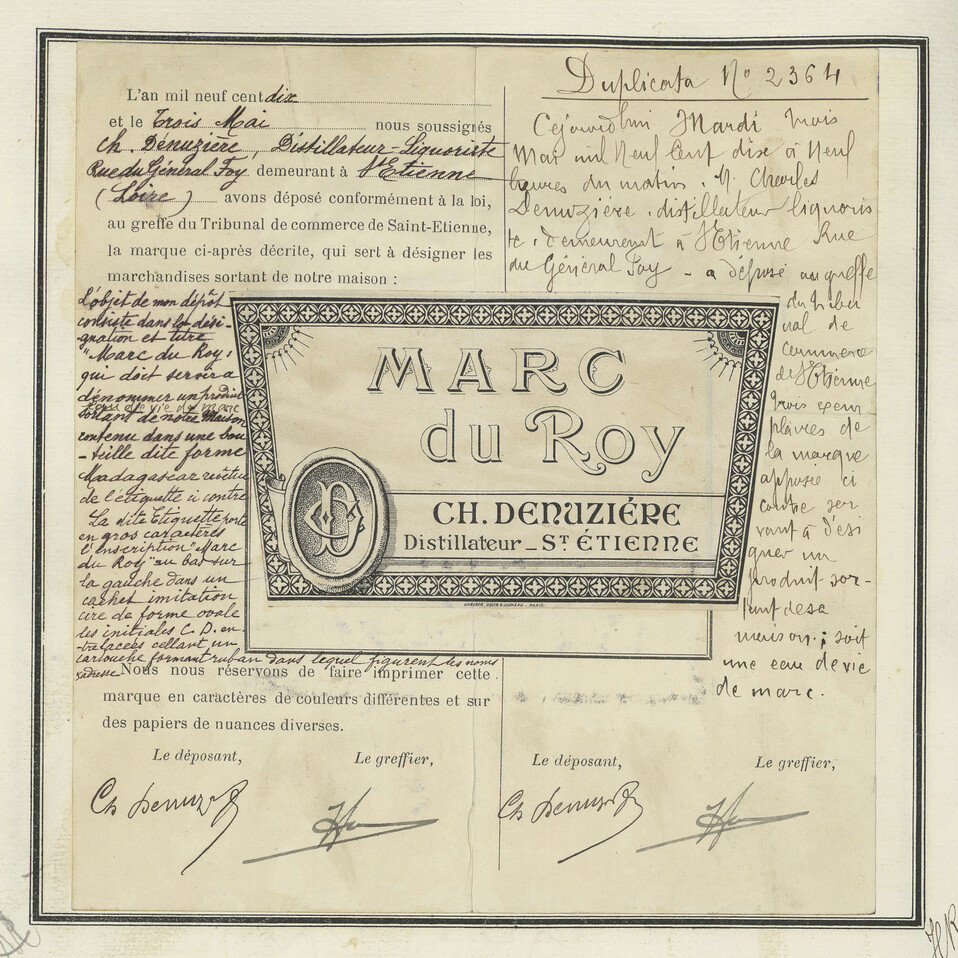 L'an mil neuf cent dix
et le Trois Mai nous soussignés
Ch. Denuzière, Distillateur-Liquoriste
Rue du Général Foy demeurant à St Etienne
(Loire) avons déposé conformément à la loi,
au greffe du Tribunal de commerce de Saint-Etienne,
la marque ci-après décrite, qui sert à désigner les
marchandises sortant de notre maison :
L'objet de mon dépôt
consiste dans la dési-
gnation et titre
"Marc du Roy"
qui doit servir à
dénommer un produit
eau de vie de marc
sortant de notre Maison
contenu dans une bou
-teille dite forme
Madagascar revêtue
de l'étiquette ci contre
La dite Etiquette porte
en gros caractères
l'inscription "Marc
du Roy" au bas sur
la gauche dans un
cachet imitation
cire de forme ovale
les initiales C. D. en-
trelacées cellant un
cartouche formant ruban dans lequel figurent les noms
adresse
Nous nous réservons de faire imprimer cette
marque en caractères de couleurs différentes et sur
des papiers de nuances diverses.
Le déposant, Le greffier,
Ch Denuz
Duplicata No 2364
Cejourd'hui Mardi trois
Mai mil Neuf Cent dix à Neuf
heures du matin, M. Charles
Denuzière, distillateur liquoris
te, demeurant à St Etienne Rue
du Général Foy - a déposé au greffe
du tribu
nal de
commerce
de St Etienne
trois exem
plaires de
la marque
apposée ci
contre ser
vant à dési
gner un
produit sor-
tant de sa
maison ; soit
une eau de vie
de marc.
Le déposant, Le greffier,
Ch Denuz
MARC
du Roy
CD
CH. DENUZIÉRE
Distillateur_ST ÉTIENNE